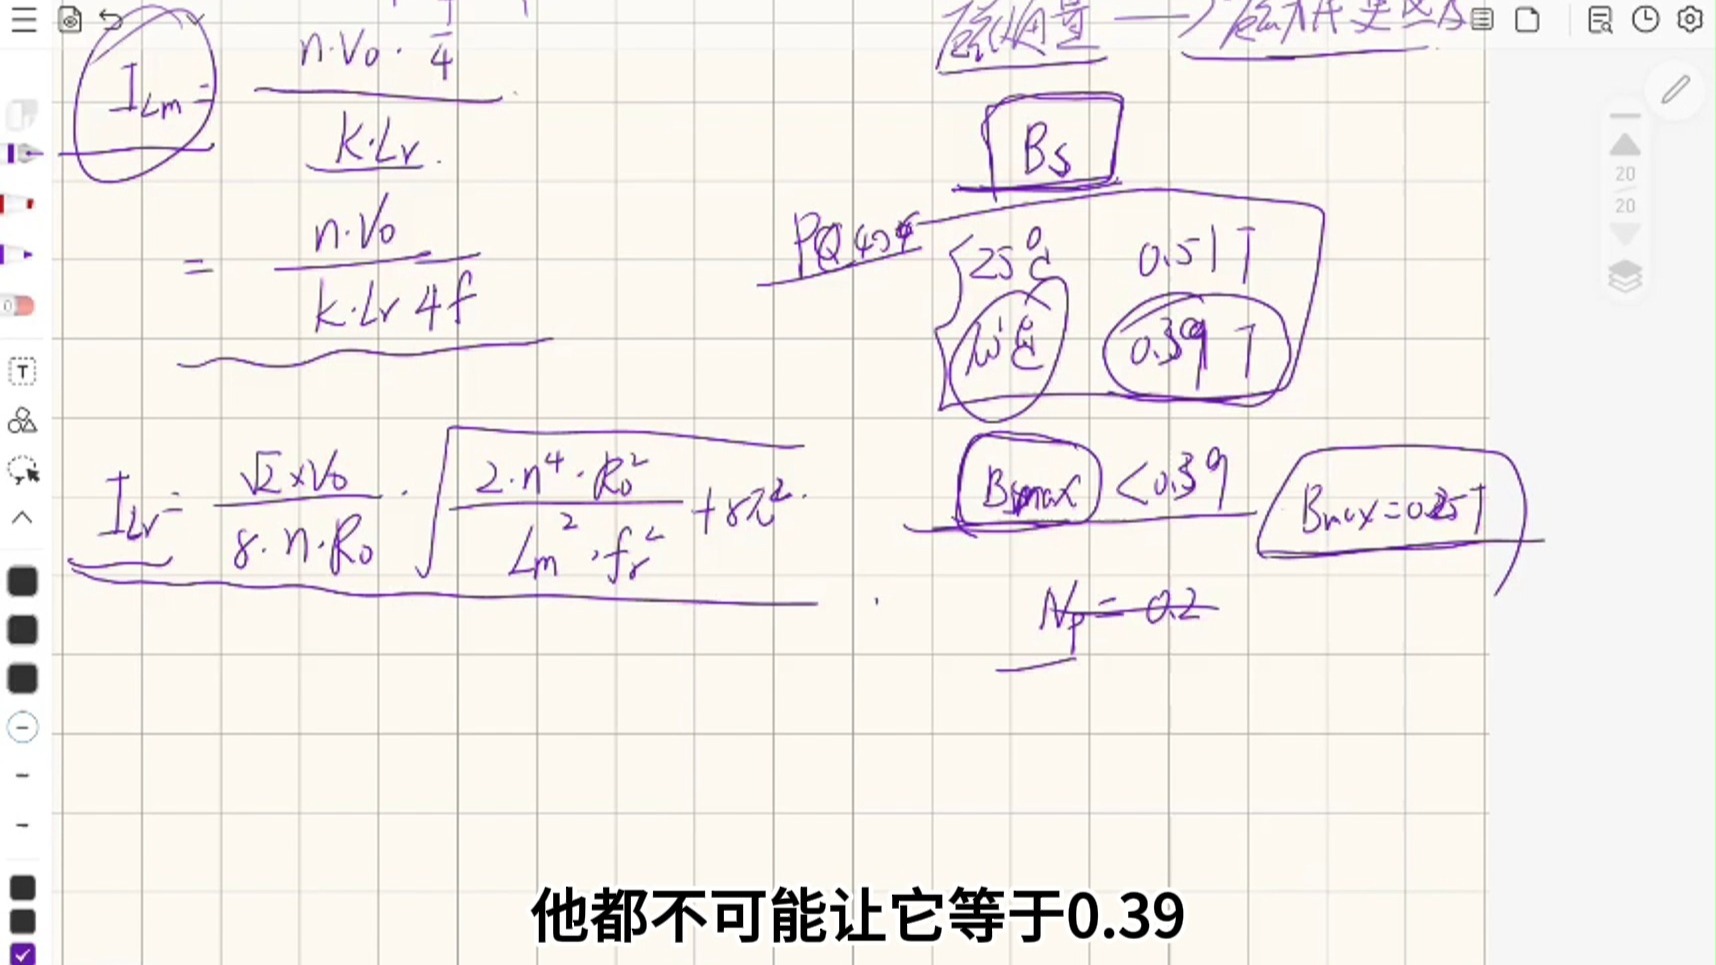 I_Lm = n·Vo· T/4 / k·Lr
= n·Vo / k·Lr 4f
I_Lr = √2×Vo / 8·n·Ro · √(2·n⁴·Ro² / Lm²·fr² + 8π²)
Bs
25℃ 0.51T
0.39T
Bsmax <0.39
Bmax=0.25T
Np= 0.2
20
20
他都不可能让它等于0.39